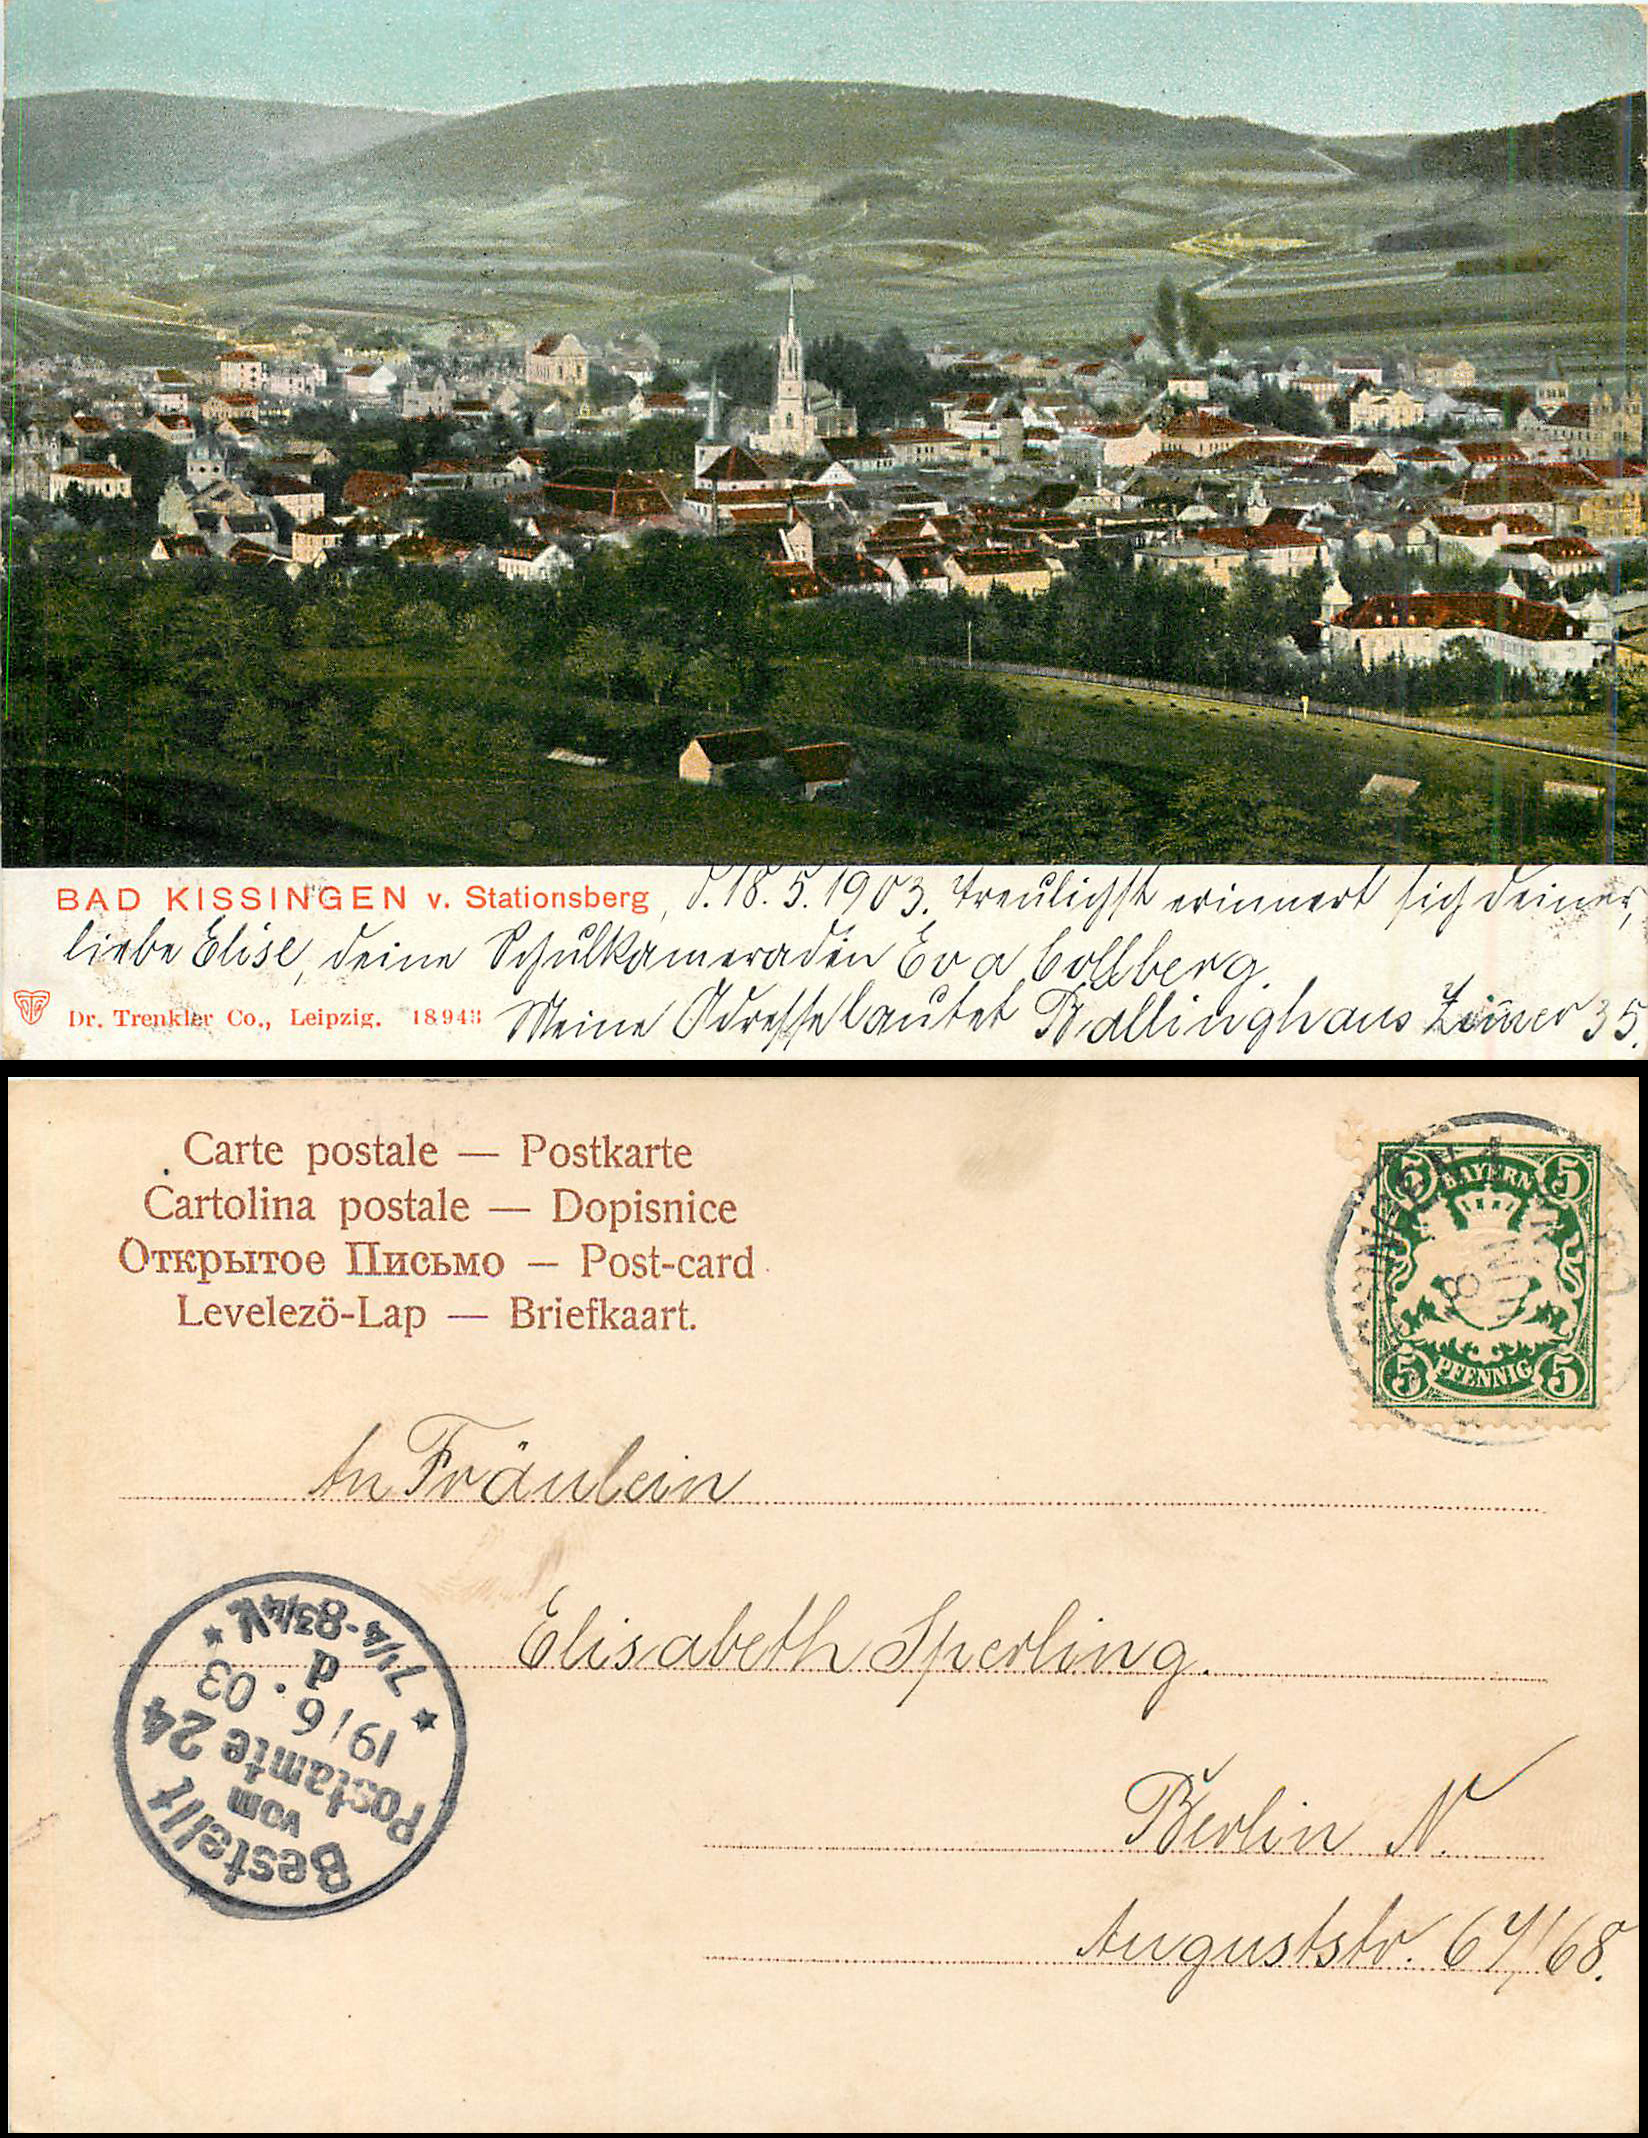 BAD KISSINGEN v. Stationsberg, d. 18. 5. 1903. Treulichst erinnert sich deiner,
liebe Elise, deine Schulkameradin Eva Collberg.
Dr. Trenkler Co., Leipzig. 18943 Meine Adresse lautet Ballinghaus Zim̅er 35.
Carte postale — Postkarte
Cartolina postale — Dopisnice
Открытое Письмо — Post-card
Levelezö-Lap — Briefkaart.
5 BAYERN 5
8
JUN
5 PFENNIG 5
An Fräulein
Elisabeth Sperling.
Berlin N.
Auguststr. 67/68.
Bestellt
vom
Postamte 24
19/6. 03
d
7 1/4-8 3/4 V